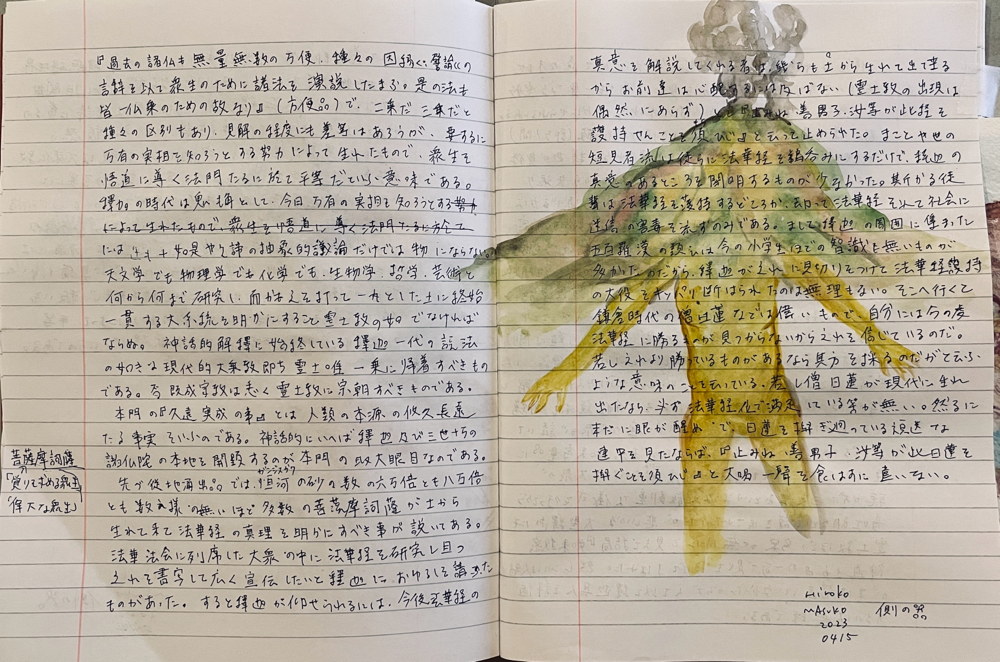 『過去の諸仏も無量無数の方便、種々の因縁、譬諭の
言辞を以て衆生のために諸法を演説したまふ。是の法も
皆一仏乗のための故なり』(方便品)で、二乗だ三乗だと
種々の区別もあり、見解の程度にも差等はあろうが、要するに
万有の実相を知ろうとする努力によって生れたもので、衆生を
悟道に導く法門たるに於て平等だといふ意味である。
釋迦の時代は思も角として、今日万有の実相を知ろうとする
によって生れたもので、衆生を悟道に導く法門たるに於て
には 十如是や 諦の抽象的議論だけでは物にならない
天文学でも物理学でも化学でも、生物学、哲学、芸術と
何から何まで研究し、而かもえを打って一丸とした土に終始
一貫する大系統を明かにすること霊士教の如でなければ
ならぬ。神話的解釋に始終している釋迦一代の説法
の如きは現代的大乗教即ち霊士の唯一乗に帰着すべきもの
である。否既成宗教は悉く霊士教に宗朝すべきものである。
本門の『久遠実成の事』とは人類の本源の悠久長遠
たる事実をいふのである。神話的にいへば釋迦及び三世十方の
諸仏院の本地を開顕するのが本門の最大眼目なのである。
先か從地涌出品では、恒河の砂の数の六万倍とも八万倍
ガンジスガワ
とも数え様の無いほど多数の菩薩摩訶薩が土から
生れて来て法華経の真理を明かにすべき事が説いてある。
法華法会に列席した大衆の中に法華経を研究し且つ
えれを書写して広く宣伝したいと釋迦におゆるしを
ものがあった。すると釋迦が仰せられるには、今後法華経の
菩薩摩訶薩
「覚りて求める衆生
「偉大な衆生」
真意を解説してくれる者は、後らも土から生れて出て来る
からお前達は心配するには及ばない(霊士教の出現は
偶然にあらず) 善男子、汝等が此経を
護持せんことを須ひじ』と云って止められたの まことや世の
短見者流は徒らに法華経を鵜呑みにするだけで、釋迦の
真意のあるところを闡明するものが少なかった。斯かる徒
輩は法華経を護持するどころか、却って法華経そして社会に
迷信の害毒を流すのみである。まして釋迦の周囲に集まった
五百羅漢の 今の小学生ほどの智識も無いものが
多かったのだから、釋迦がえれに見切りをつけて法華経護持
の大役をキッパリ断はられたのは無理もない。そこへ行くと
鎌倉時代の僧日蓮などは偉いもので、自分には今の處
法華経に勝るものが見つからないからえれを信じているのだ。
若しえれより勝っているものがあるなら其方を採るのだがと云ふ
ような意味のことを云っている。若し僧日蓮が現代に生れ
出たなら、必ず法華経 で満足している筈が無い。然るに
未だに眼が醒め で、日蓮を担ぎ廻っている
連中を見たならば、『止みね、善男子、汝等が此日蓮を
担ぐことを須ひじ』と大喝一聲を食はすに違いない。
Hiroko
MAsuko
2023
0415
側の器